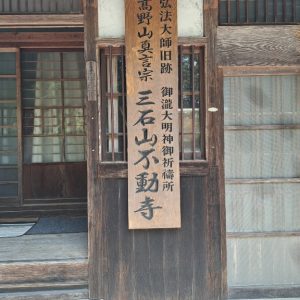 弘法大師旧跡 御瀧大明神御祈禱所
高野山真言宗 三石山不動寺